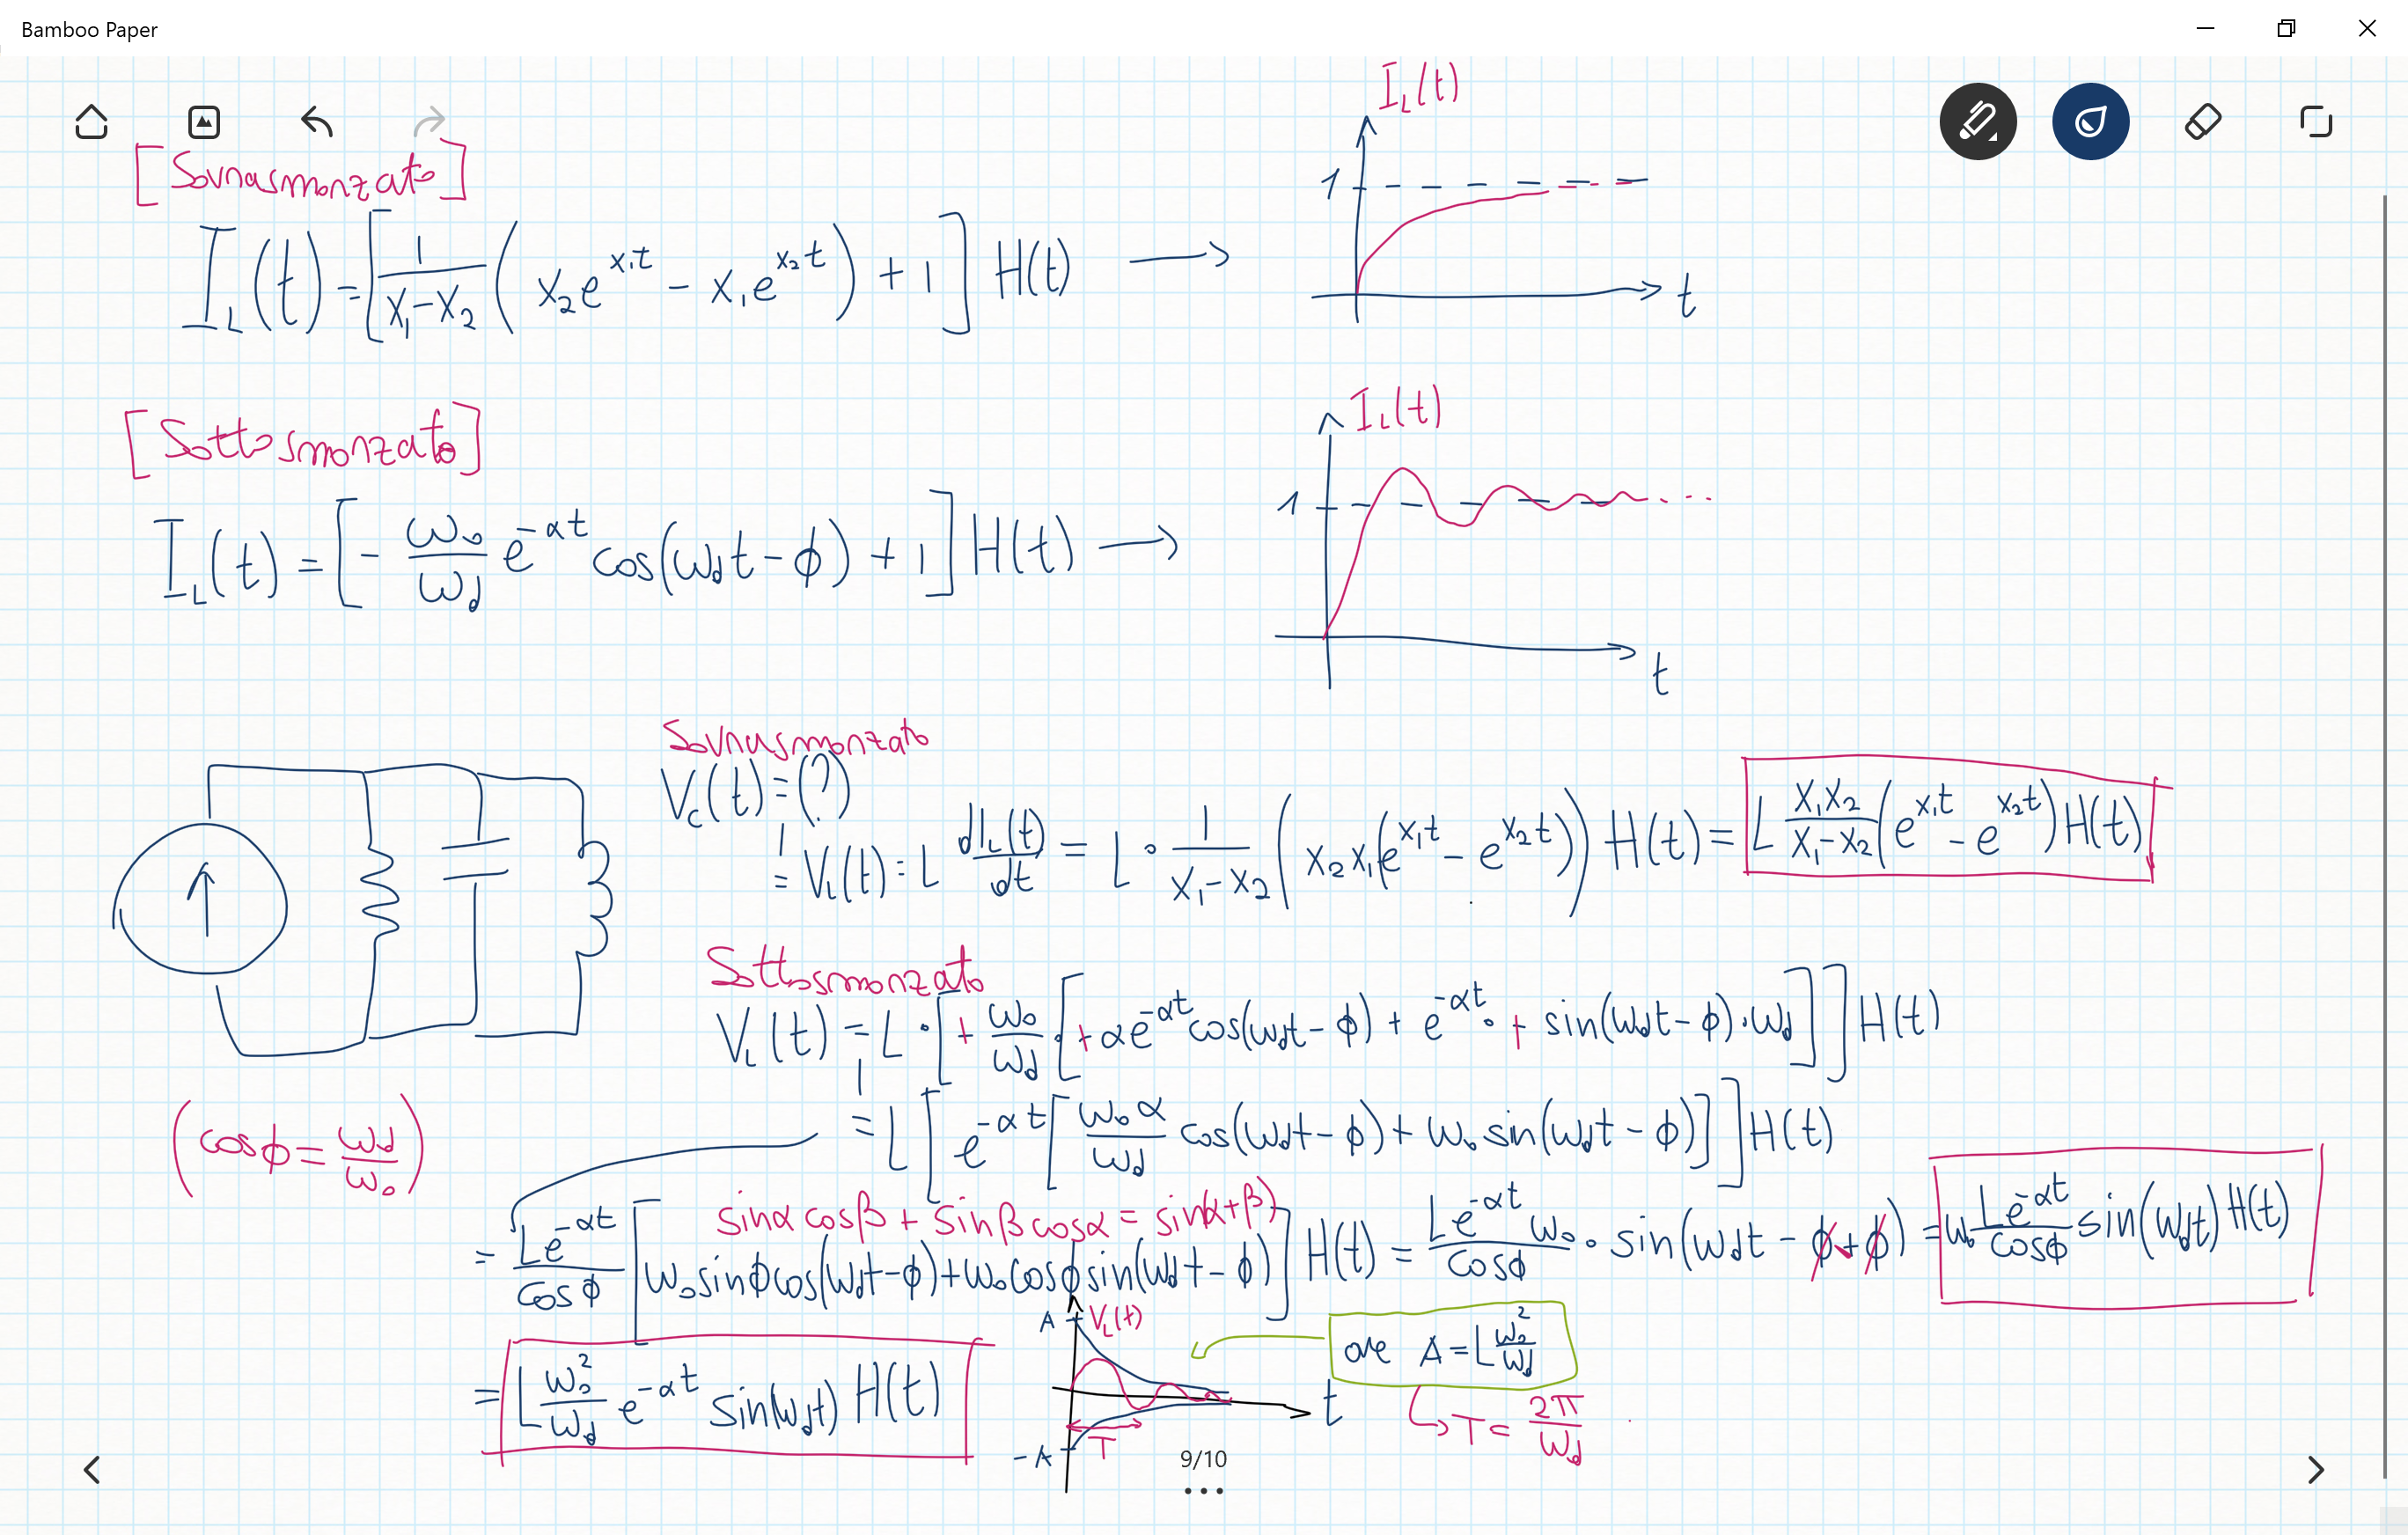 Bamboo Paper
I_L(t)
[Sovrasmorzato]
1
I_L(t) = [1/(x₁-x₂) (x₂e^(x₁t) - x₁e^(x₂t)) + 1] H(t) →
t
I_L(t)
[Sottosmorzato]
1
I_L(t) = [- ω₀/ω_d e^(-αt) cos(ω_d t - ϕ) + 1] H(t) →
t
Sovrasmorzato
V_C(t) = (?)
= V_L(t) = L dI_L(t)/dt = L · 1/(x₁-x₂) (x₂x₁(e^(x₁t) - e^(x₂t))) H(t) = L x₁x₂/(x₁-x₂) (e^(x₁t) - e^(x₂t)) H(t)
Sottosmorzato
V_L(t) = L · [+ ω₀/ω_d · [+ αe^(-αt) cos(ω_d t - ϕ) + e^(-αt) · + sin(ω_d t - ϕ) · ω_d]] H(t)
(cos ϕ = ω_d/ω₀)
= L [e^(-αt) [ω₀α/ω_d cos(ω_d t - ϕ) + ω₀ sin(ω_d t - ϕ)]] H(t)
sinα cosβ + sinβ cosα = sin(α+β)
= Le^(-αt)/cosϕ [ω₀ sinϕ cos(ω_d t - ϕ) + ω₀ cosϕ sin(ω_d t - ϕ)] H(t) = Le^(-αt)/cosϕ ω₀ · sin(ω_d t - ϕ + ϕ) = ω₀ Le^(-αt)/cosϕ sin(ω_d t) H(t)
= L ω₀²/ω_d e^(-αt) sin(ω_d t) H(t)
A
V_L(t)
t
T
-A
ove A = L ω₀²/ω_d
→ T = 2π/ω_d
9/10